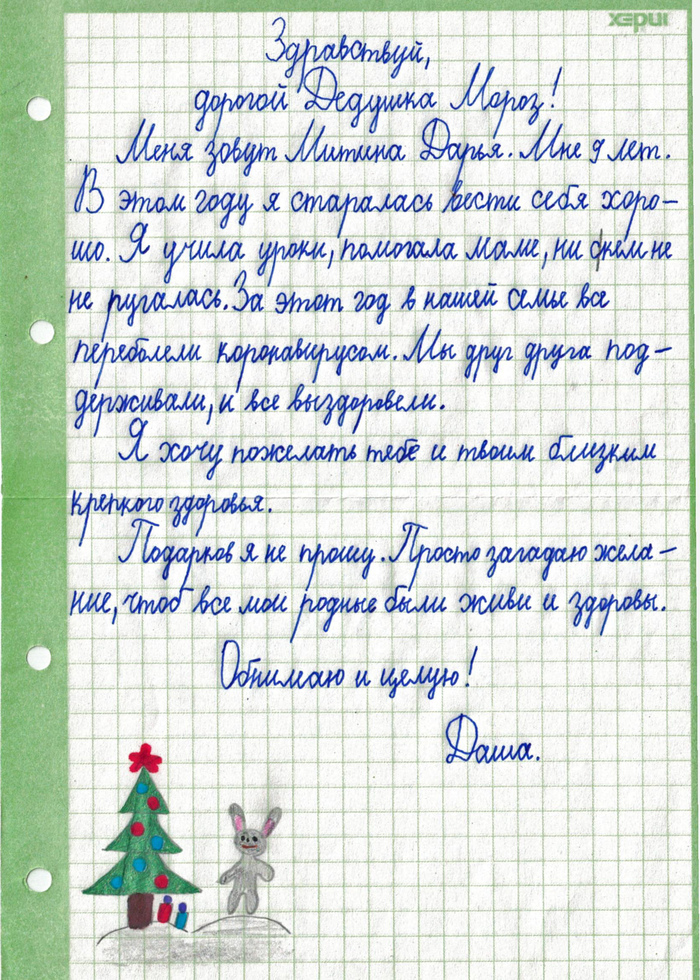 хэриг
Здравствуй,
дорогой Дедушка Мороз!
Меня зовут Митина Дарья. Мне 9 лет.
В этом году я старалась вести себя хоро-
шо. Я учила уроки, помогала маме, ни с кем не
не ругалась. За этот год в нашей семье все
переболели коронавирусом. Мы друг друга под-
держивали, и все выздоровели.
Я хочу пожелать тебе и твоим близким
крепкого здоровья.
Подарков я не прошу. Просто загадаю жела-
ние, чтоб все мои родные были живы и здоровы.
Обнимаю и целую!
Даша.